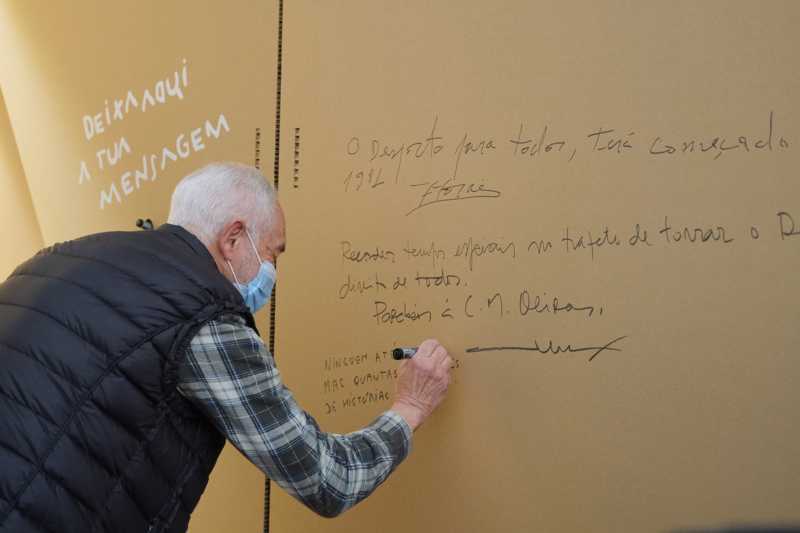 DEIXA AQUI
A TUA
MENSAGEM
O Desporto para todos, terá começado
1991
Recordar tempos especiais no trajeto de tornar o D
direito de todos.
Parabéns á C. M. Oeiras,
NINGUEM ATÉ
MAS QUANTAS
DE HISTÓRIA